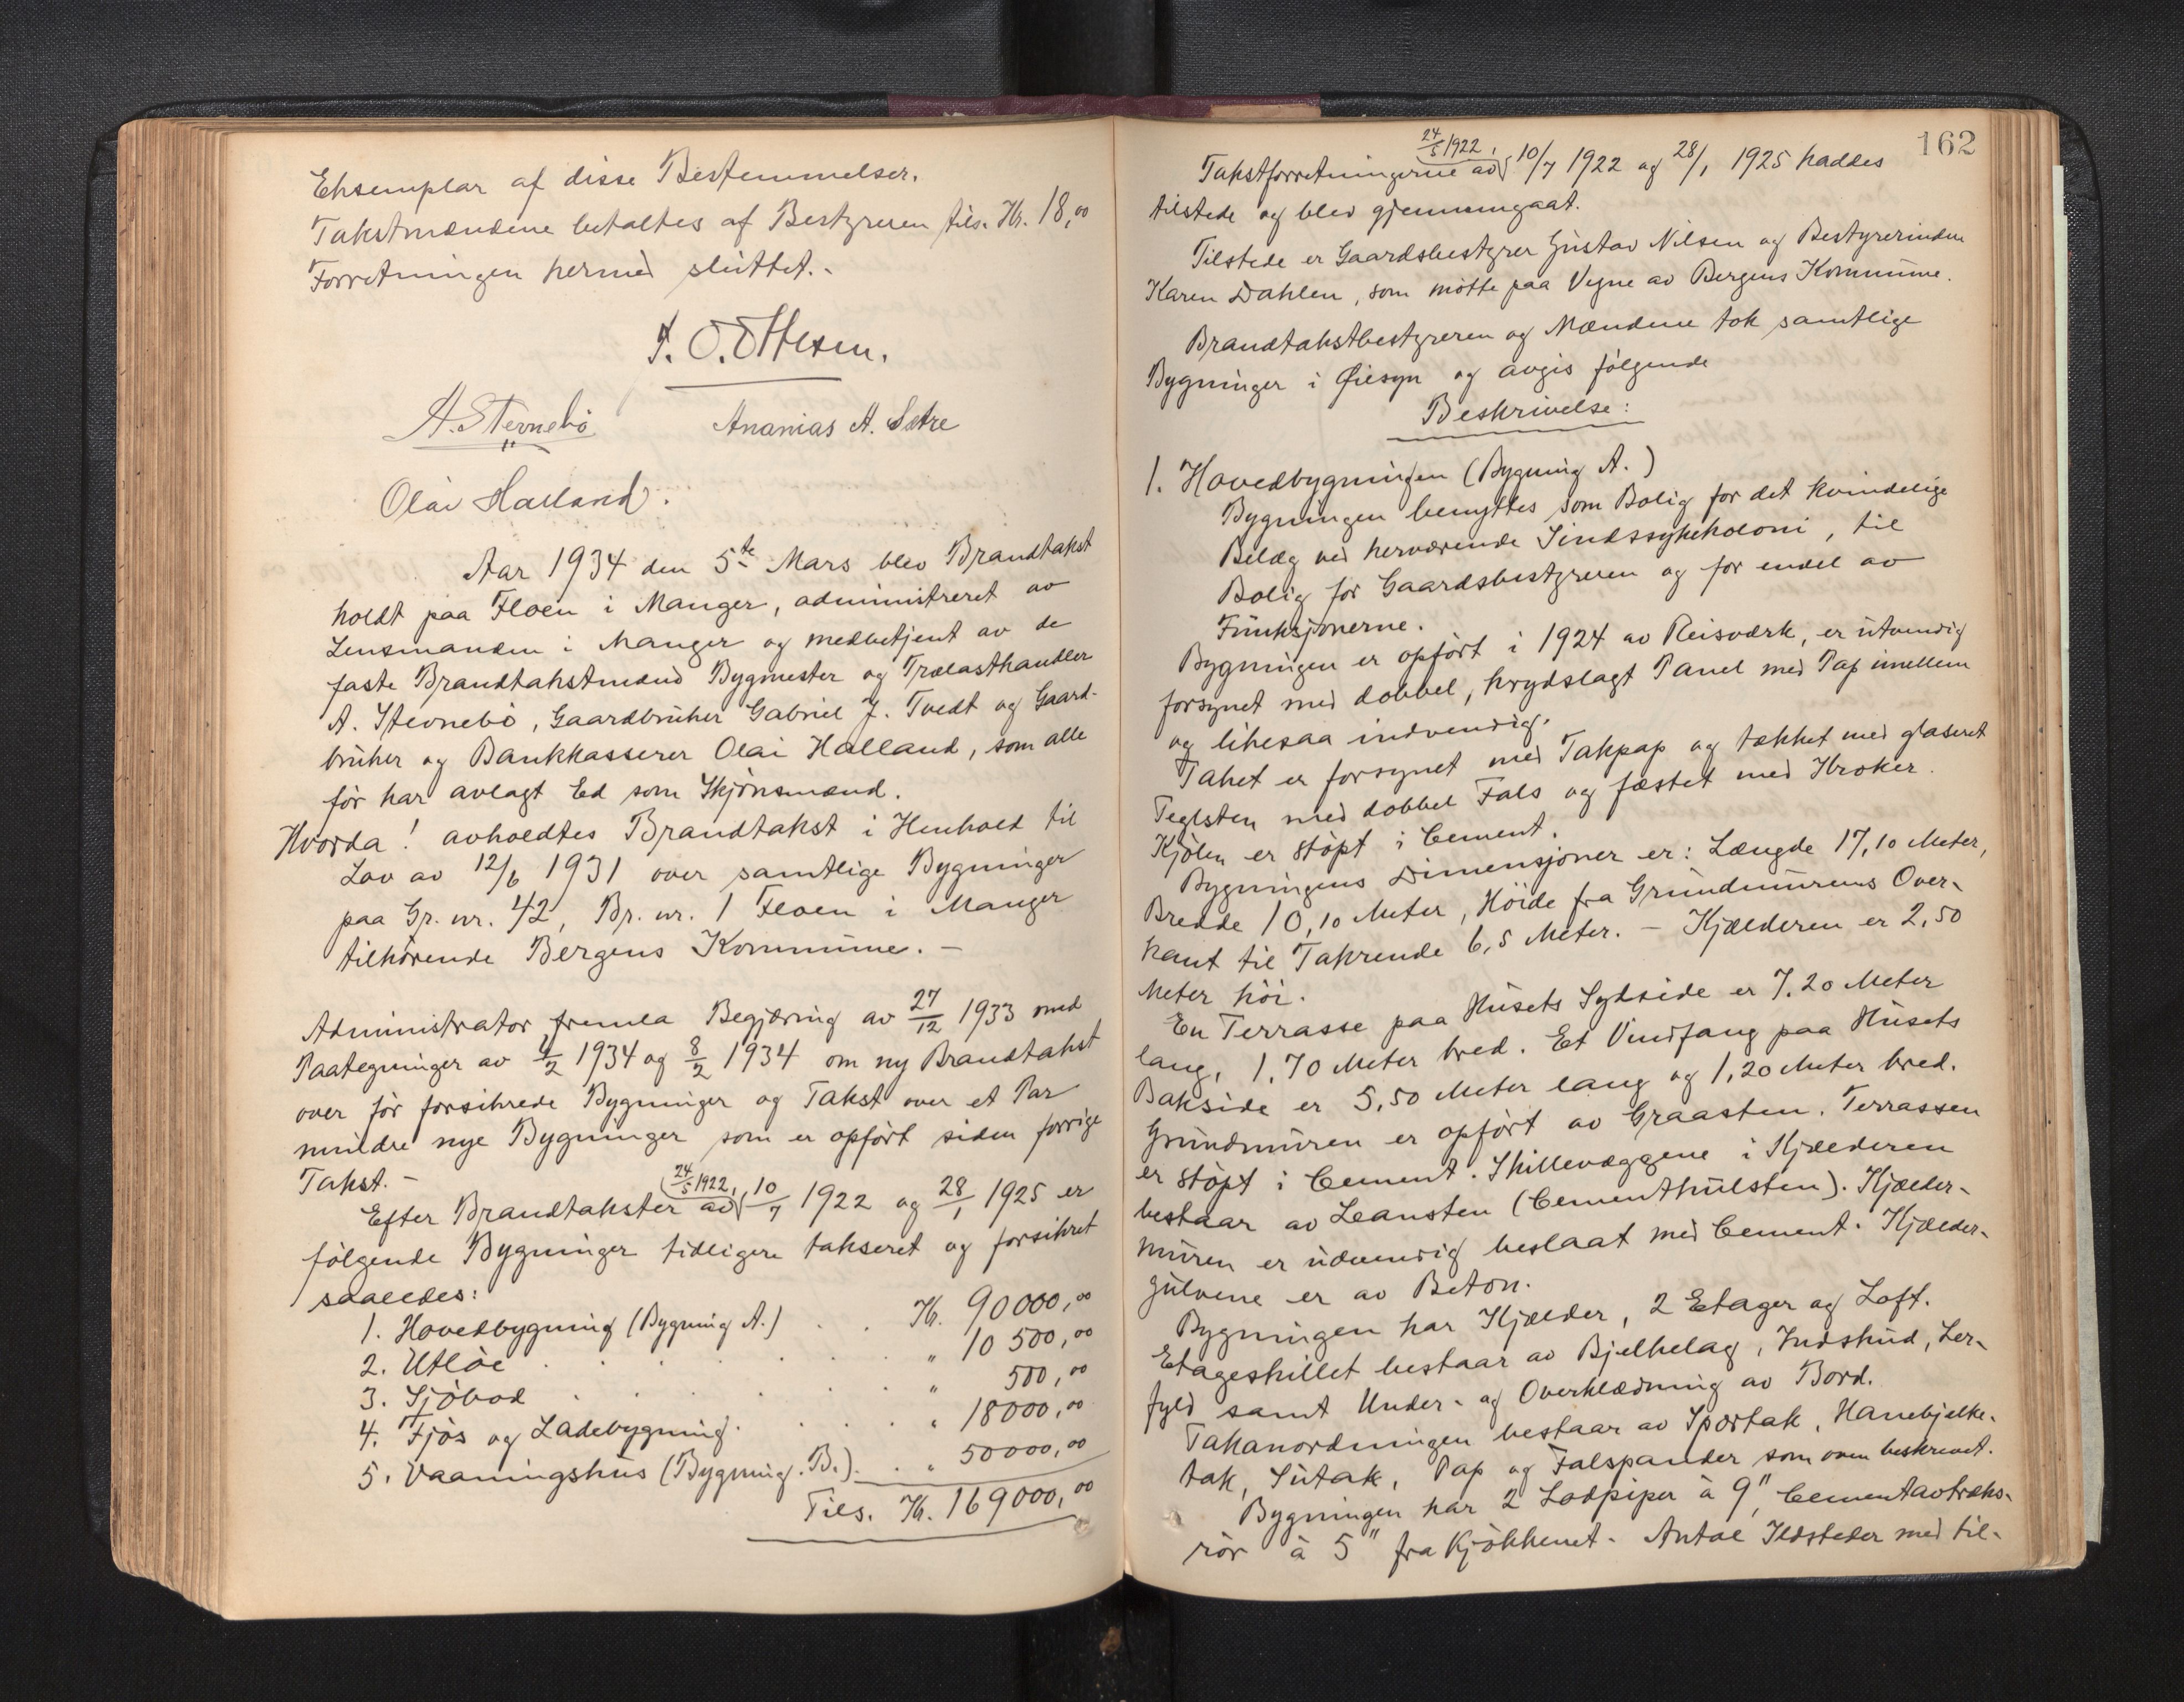 Eksemplar af disse Bestemmelser.
Takstmændene betaltes af Bestyreren tils. Kr. 18,00
Forretningen hermed sluttet.-
A. Stevnebö
Ananias A. Sætre
Olai Halland.
Aar 1934 den 5te Mars blev Brandtakst
holdt paa Floen i Manger, administreret av
Lensmanden i Manger og medbetjent av de
faste Brandtakstmænd Bygmester og Trælasthandler
A. Stevnebö, Gaardbruker Gabriel J. Tvedt og Gaard-
bruker og Bankkasserer Olai Halland, som alle
för har avlagt Ed som Skjönsmænd.
Hvorda! avholdtes Brandtakst i Henhold til
Lov av 12/6 1931 over samtlige Bygninger
paa Gr. nr. 42, Br. nr. 1 Floen i Manger
tilhörende Bergens Kommune. -
Administrator fremla Begjæring av 27/12 1933 med
Paategninger av 1/2 1934 og 8/2 1934 om ny Brandtakst
over för forsikrede Bygninger og Takst over et Par
mindre nye Bygninger som er opfört siden forrige
Takst. -
24/5 1922,
Efter Brandtakster av 10/7 1922 og 28/1 1925 er
fölgende Bygninger tidligere takseret og forsikret
saaledes:
1. Hovedbygning (Bygning A.) . . Kr. 90000,00
2. Utlöe . . . . . . " 10 500,00
3. Sjöbod . . . . . " 500,00
4. Fjös og Ladebygning . . . . " 18000,00
5. Vaaningshus (Bygning. B.) . . " 50000,00
Tils. Kr. 169000,00
162
24/5 1922,
Takstforretningerne av 10/7 1922 og 28/1 1925 haddes
tilstede og blev gjennemgaat.
Tilstede er Gaardsbestyrer Gustav Nilsen og Bestyrerinden
Karen Dahlen, som mötte paa Vegne av Bergens Kommune.
Brandtakstbestyreren og Mændene tok samtlige
Bygninger i Øiesyn og avgis fölgende
Beskrivelse:
1. Hovedbygningen (Bygning A.)
Bygningen benyttes som Bolig for det kvindelige
Belæg ved herværende Sindssykekoloni, til
Bolig for Gaardsbestyreren og for endel av
Funksjonerne.
Bygningen er opfört i 1924 av Reisværk, er utvendig
forsynet med dobbel, krydslagt Panel med Pap imellem
og likesaa indvendig.
Taket er forsynet med Takpap og tækket med glaseret
Teglsten med dobbel Fals og fæstet med Kroker.
Kjölen er stöpt i Cement.
Bygningens Dimensjoner er: Længde 17,10 Meter,
Bredde 10,10 Meter, Höide fra Grundmurens Over-
kant til Takrende 6,5 Meter. - Kjælderen er 2,50
Meter höi.
En Terrasse paa Husets Sydside er 7,20 Meter
lang, 1,70 Meter bred. Et Vindfang paa Husets
Bakside er 5,50 Meter lang og 1,20 Meter bred.
Grundmuren er opfört av Graasten. Terrassen
er stöpt i Cement. Skillevæggene i Kjælderen
bestaar av Leansten (Cementhulsten). Kjælder-
muren er udvendig beslaat med Cement. Kjælder-
gulvene er av Beton.
Bygningen har Kjælder, 2 Etager og Loft.
Etageskillet bestaar av Bjelkelag, Indskud, Ler-
fyld samt Under- og Overklædning av Bord.
Takanordningen bestaar av Spærtak, Hanebjelke-
tak, Sutak, Pap og Falspander som oven beskrevet.
Bygningen har 2 Lodpiper à 9", Cementavtræks-
rör à 5" fra Kjökkenet. Antal Ildsteder med til-